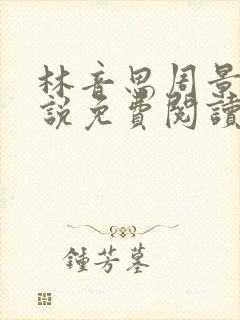 林音思周景
說免費閱讀
鍾芳墓